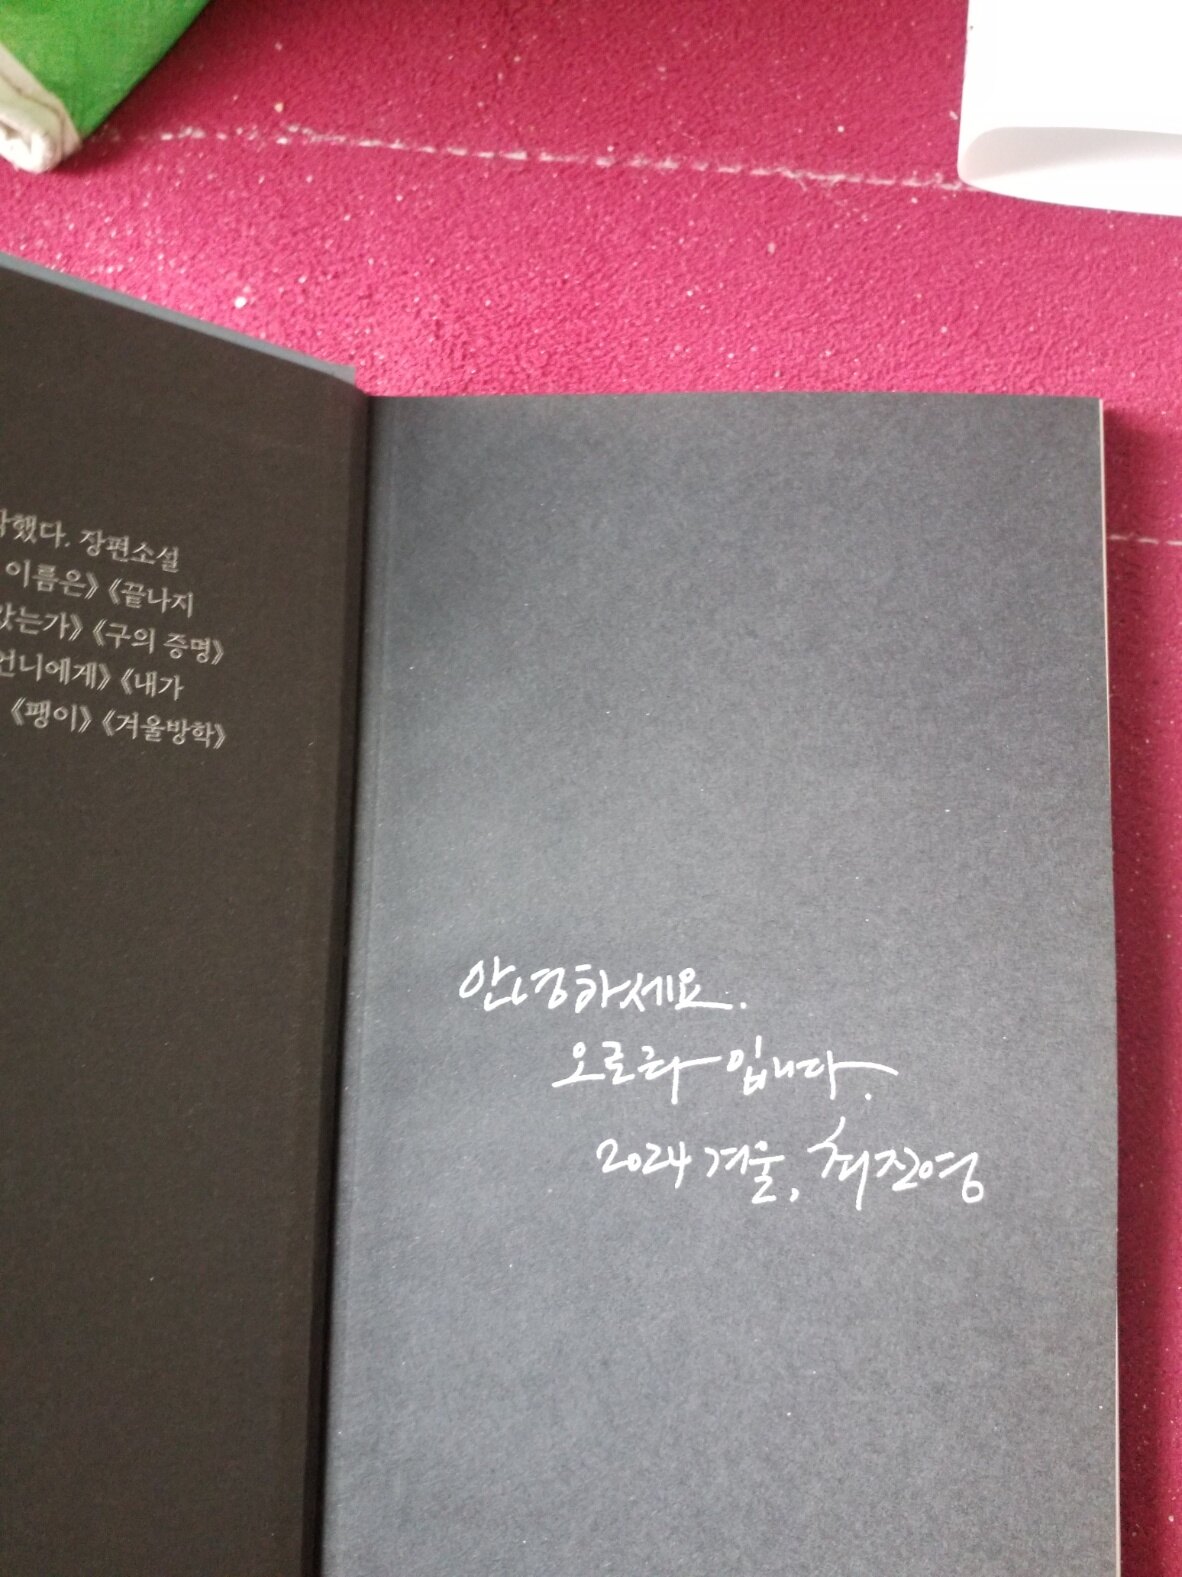 했다. 장편소설
이름은》 《끝나지
는가》 《구의 증명》
언니에게》 《내가
《팽이》 《겨울방학》
안녕하세요.
오로라 입니다.
2024 겨울, 최진영